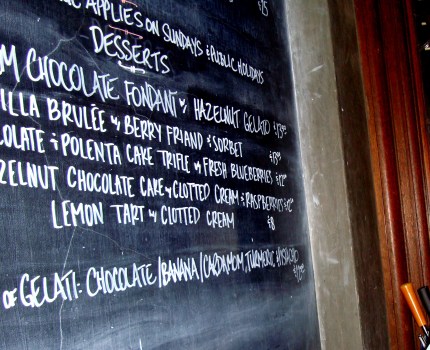 APPLIES ON SUNDAYS & PUBLIC HOLIDAYS
DESSERTS
M CHOCOLATE FONDANT w HAZELNUT GELATO
ILLA BRULÉE w BERRY FRIAND & SORBET
OLATE & POLENTA CAKE TRIFLE w FRESH BLUEBERRIES
ZELNUT CHOCOLATE CAKE w CLOTTED CREAM & RASPBERRIES
LEMON TART w CLOTTED CREAM $8
OF GELATI: CHOCOLATE/BANANA/CARDAMOM, TURMERIC